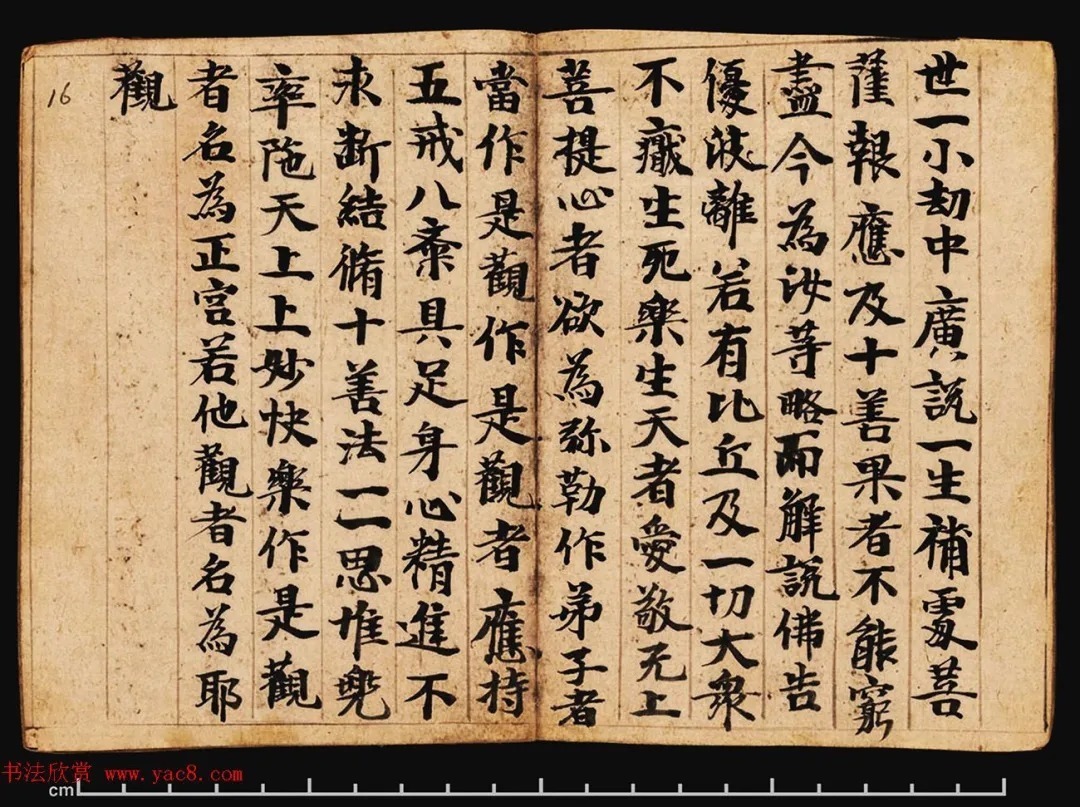 世一小劫中廣說一生補處菩
薩報應及十善果者不能窮
盡今為汝等略而解說佛告
優波離若有比丘及一切大衆
不猒生死樂生天者愛敬无上
菩提心者欲為弥勒作弟子者
當作是觀作是觀者應持
五戒八齋具足身心精進不
求斷結脩十善法一一思惟兜
率陁天上上妙快樂作是觀
者名為正宫若他觀者名為耶
觀
16
书法欣赏 www.yac8.com
cm